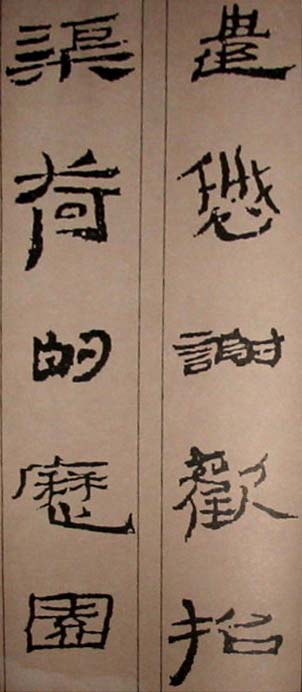 遣慼謝歡招
渠荷的歷園